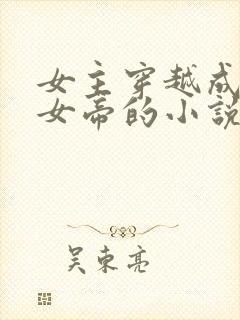 女主穿越成
女帝的小说
吴东亮